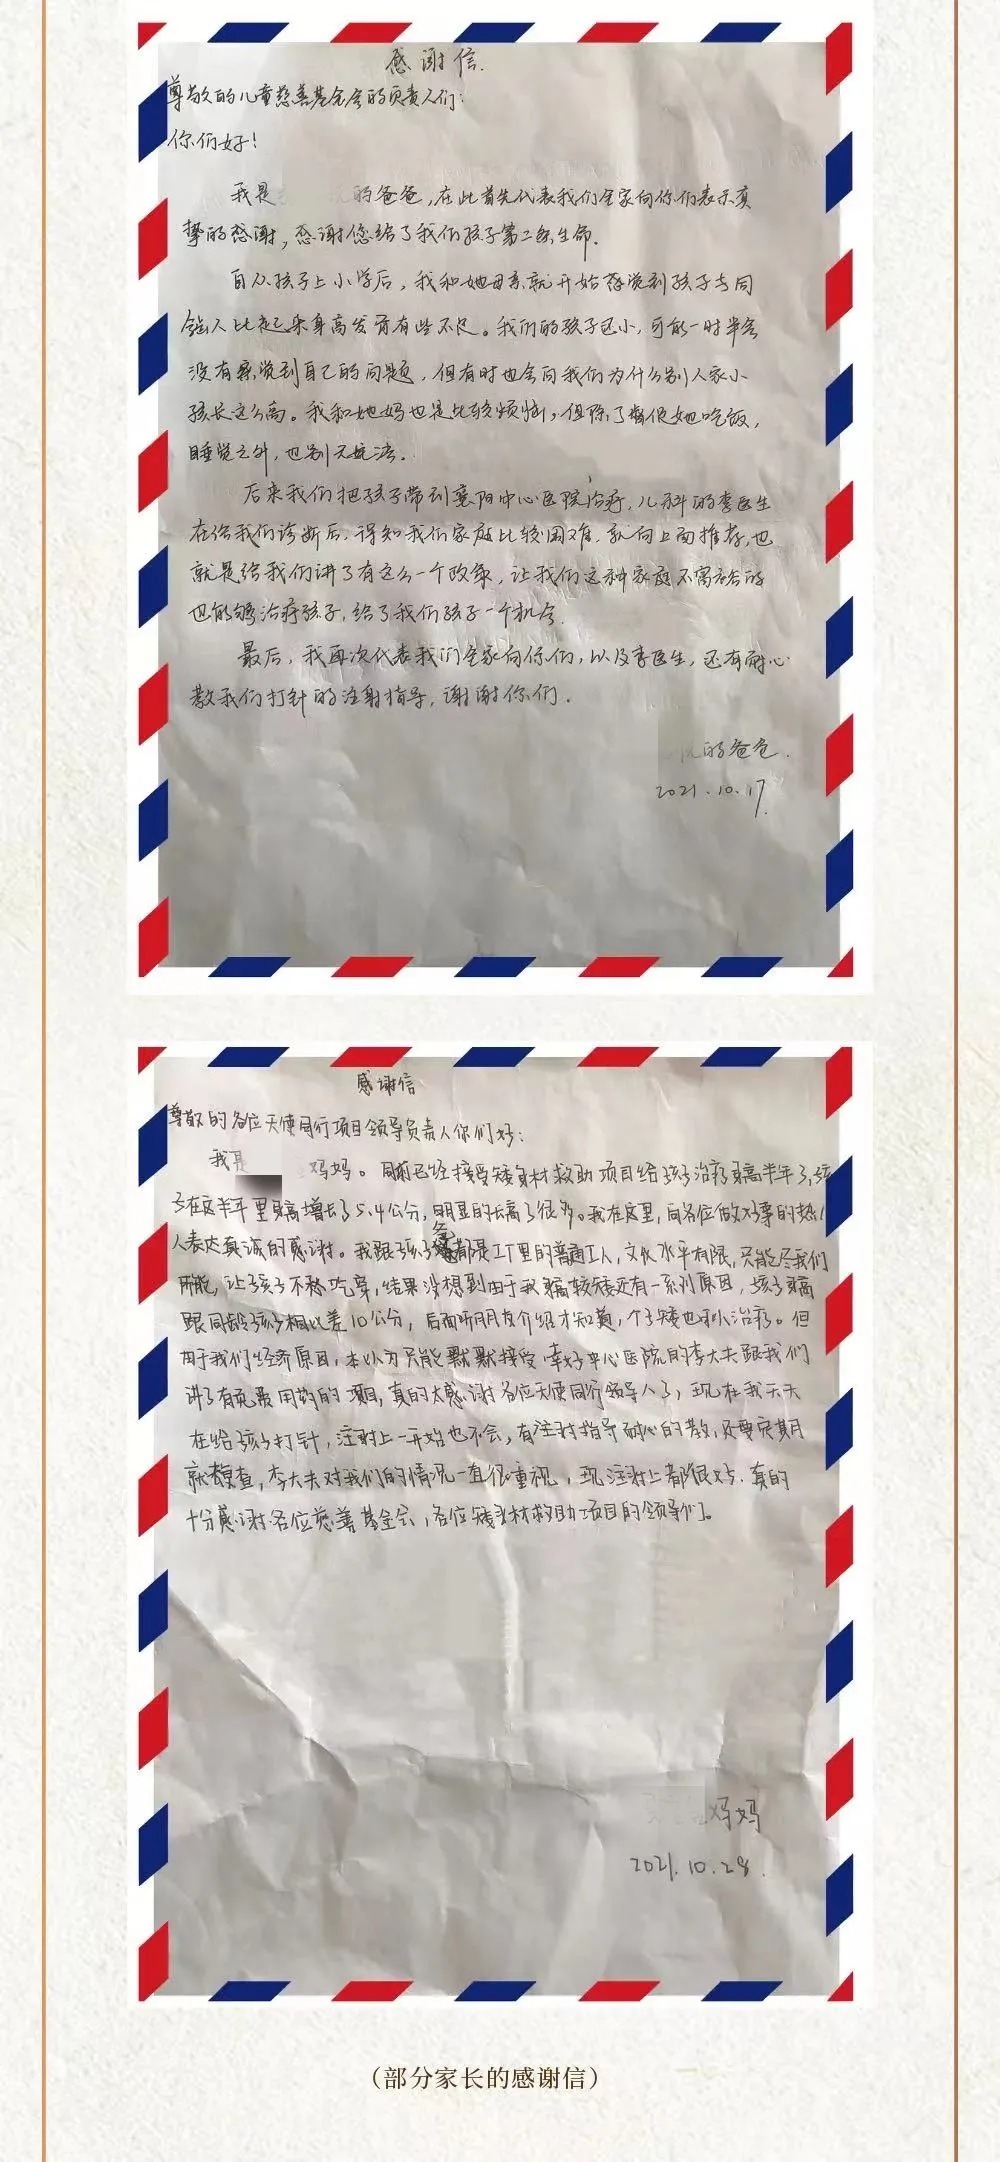 感谢信.
尊敬的儿童慈善基金会的负责人们:
你们好!
我是 的爸爸,在此首先代表我们全家向你们表示真
挚的感谢,感谢您给了我们孩子第二条生命.
自从孩子上小学后,我和她母亲就开始感觉到孩子与同
龄人比起来身高发育有些不足。我们的孩子还小,可能一时半会
没有察觉到自己的问题,但有时也会问我们为什么别人家小
孩长这么高。我和她妈也是比较烦恼,但除了督促她吃饭,
睡觉之外,也别无她法.
后来我们把孩子带到襄阳中心医院治疗,儿科的李医生
在给我们诊断后,得知我们家庭比较困难.就向上面推荐,也
就是给我们讲了有这么一个政策,让我们这种家庭不富裕的
也能够治疗孩子,给了我们孩子一个机会.
最后,我再次代表我们全家向你们,以及李医生,还有耐心
教我们打针的注射指导,谢谢你们.
悦的爸爸.
2021.10.17.
感谢信
尊敬的各位天使同行项目领导负责人你们好:
我是 妈妈。目前已经接受矮身材救助项目给孩子治疗身高半年了,孩
子在这半年里身高增长了5.4公分,明显的长高了很多。我在这里,向各位做好事的热心
人表达真诚的感谢。我跟孩子爸爸都是工厂里的普通工人,文化水平有限,只能尽我们
所能,让孩子不愁吃穿,结果没想到由于我身高较矮还有一系列原因,孩子身高
跟同龄孩子相比差10公分,后面听朋友介绍才知道,个子矮也可以治疗。但
由于我们经济原因,本以为只能默默接受.幸好中心医院的李大夫跟我们
讲了有免费用药的项目,真的太感谢各位天使同行领导人了,现在我天天
在给孩子打针,注射上一开始也不会,有注射指导耐心的教,还要定期
就复查,李大夫对我们的情况一直很重视,现注射上都很好.真的
十分感谢各位慈善基金会,各位矮身材救助项目的领导们。
妈妈
2021.10.28.
（部分家长的感谢信）